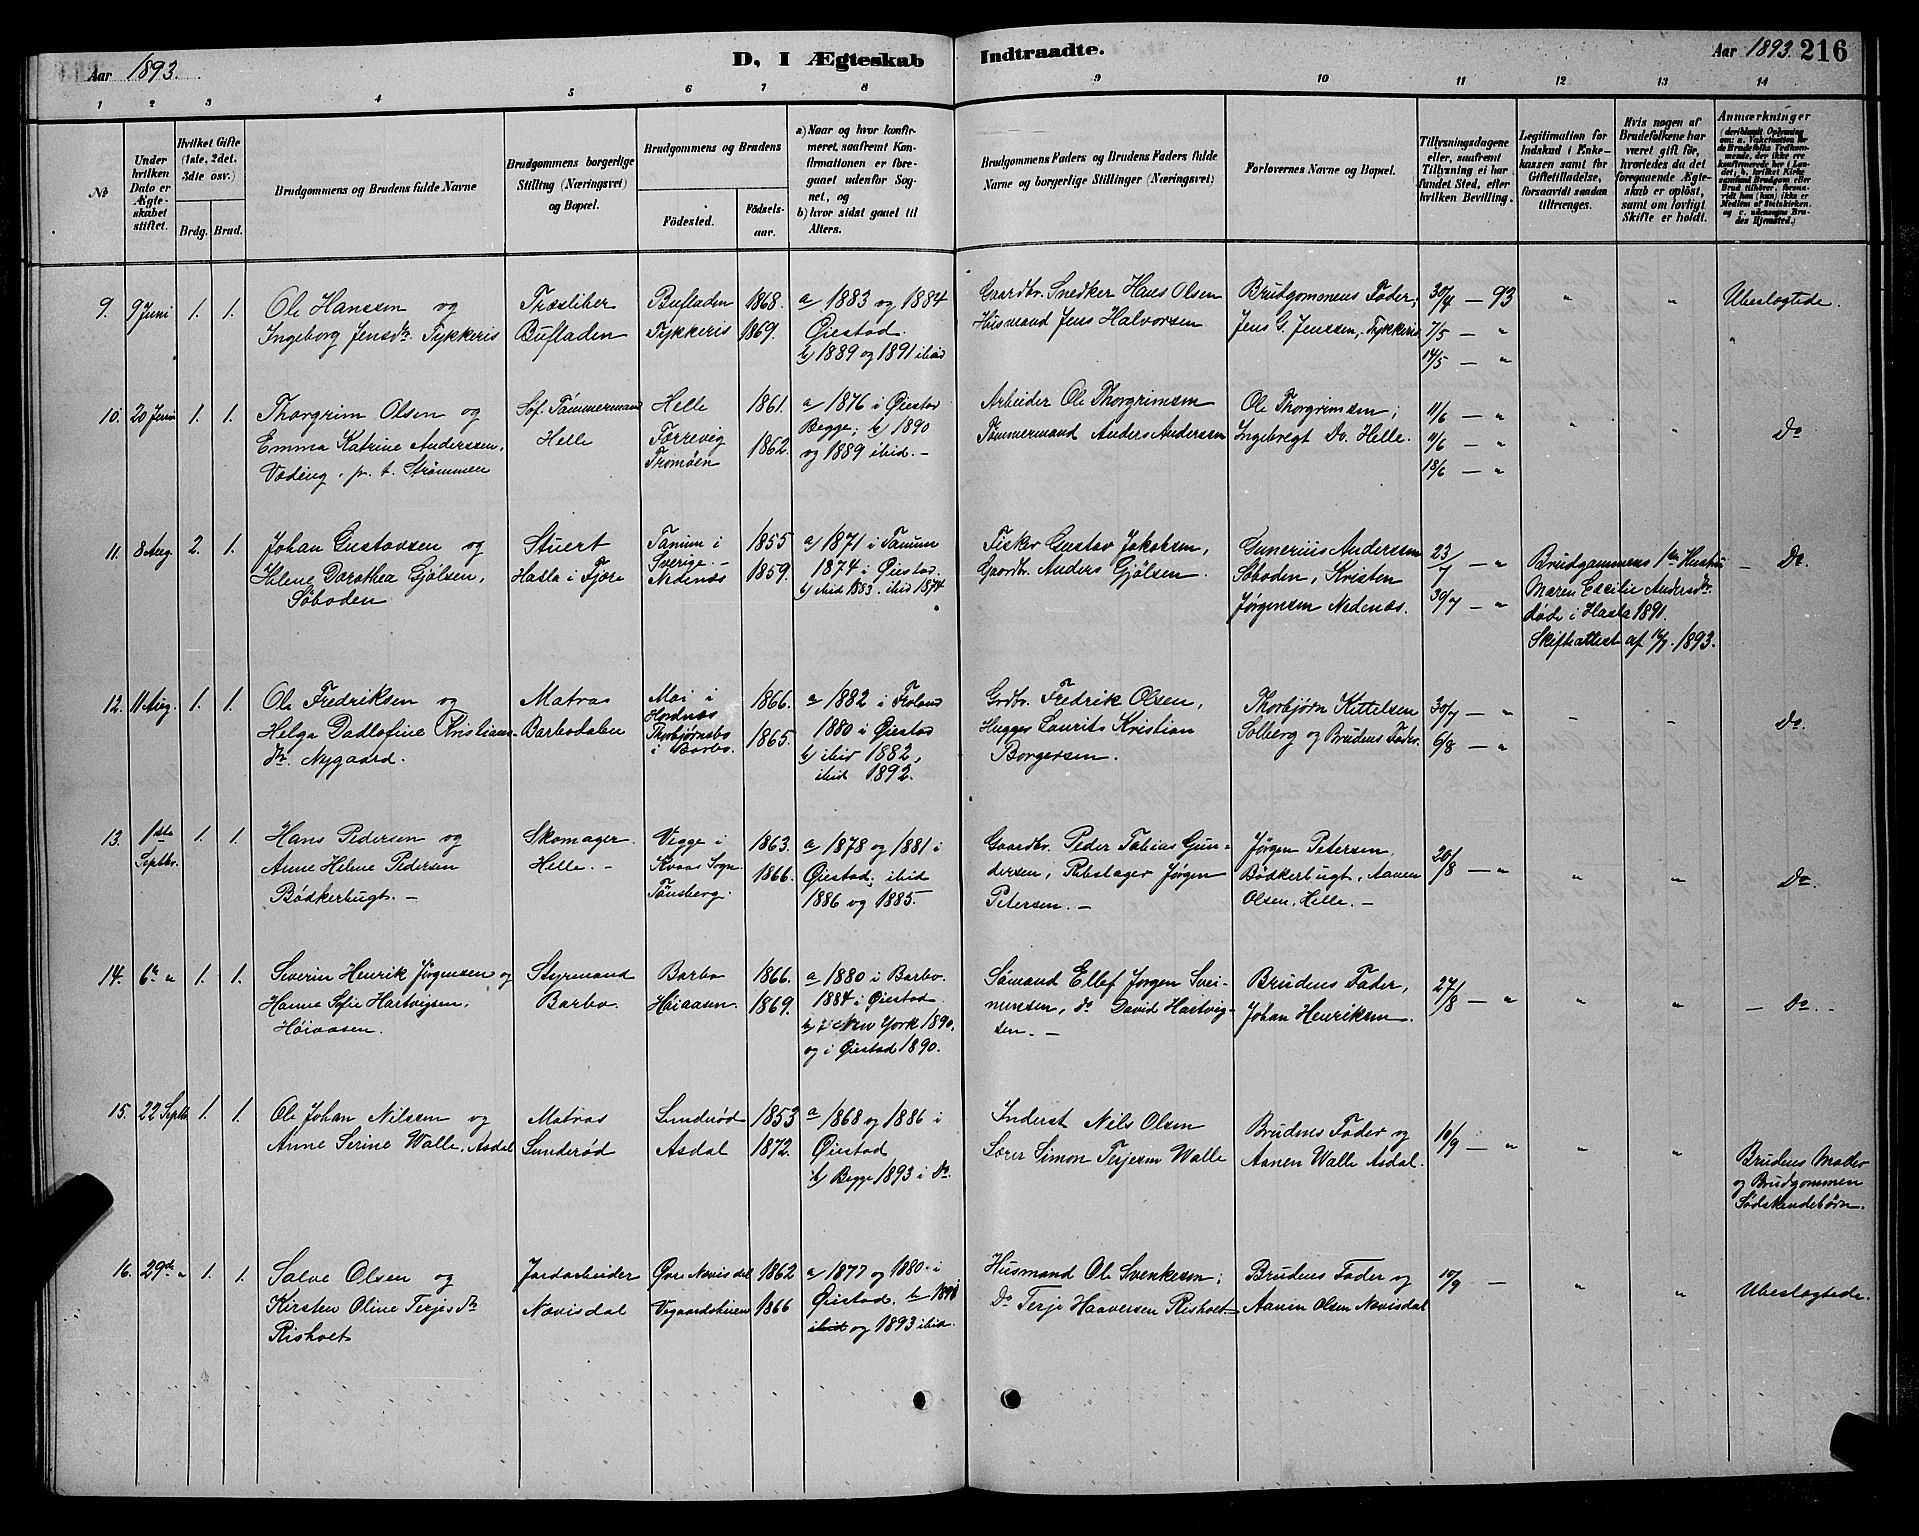 Aar 1893.
D, I Ægteskab Indtraadte.
Aar 1893. 216
1 2 3 4 5 6 7 8 9 10 11 12 13 14
No
Under hvilken Dato er Ægteskabet stiftet.
Hvilket Gifte (1ste, 2det, 3die osv.)
Brdg. Brud.
Brudgommens og Brudens fulde Navne
Brudgommens borgerlige Stilling (Næringsvei) og Bopæl.
Brudgommens og Brudens
Födested. Födselsaar.
a) Naar og hvor konfirmeret, saafremt Konfirmationen er foregaaet udenfor Sognet, og
b) hvor sidst gaaet til Alters.
Brudgommens Faders og Brudens Faders fulde Navne og borgerlige Stillinger (Næringsvei)
Forlovernes Navne og Bopæl.
Tillysningsdagene eller, saafremt Tillysning ei har fundet Sted, efter hvilken Bevilling.
Legitimation for Indskud i Enkekassen samt for Giftetilladelse, forsaavidt saadan tiltrænges.
Hvis nogen af Brudefolkene har været gift för, hvorledes da det foregaaende Ægteskab er oplöst, samt om lovligt Skifte er holdt.
Anmærkninger
9. 9 Juni 1. 1. Ole Hanssen og Træsliber Bufladen 1868. a 1883 og 1884 Gaardbr. Snedker Hans Olsen Brudgommens Fader; 30/4 — 93 " " Ubeslogtede.
Ingeborg Jensdr. Tykkeris Bufladen Tykkeris 1869. Øiestad. Husmand Jens Halvorsen Jens G. Jenssen, Tykkeris 7/5 — "
b) 1889 og 1891 ibid 14/5 — "
10. 20 Juni 1. 1. Thorgrim Olsen og Sof. Tømmermand Helle 1861. a 1876 i Øiestad Arbeider Ole Thorgrimsen Ole Thorgrimsen; 11/6 — " " " Do
Emma Katrine Anderssen, Helle Færrevig 1862. Begge; b) 1890 Tømmermand Anders Anderssen Ingebregt Do. Helle. 11/6 — "
Vøding, p. t. Strømmen Tromøen og 1889 ibid. — 18/6 — "
11. 8 Aug. 2. 1. Johan Gustavsen og Stuert Tanum i 1855 a) 1871 i Tanum Fisker Gustav Jakobsen, Gunerius Anderssen 23/7 — " Brudgommens 1ste Hustru — Do.
Helene Dorothea Gjølsen, Hasla i Fjære Sverige. — Nedenæs 1859. 1874 i Øiestad. Gaardbr. Anders Gjølsen. Søboden, Kristen Maren Cecilie Andersdr.
Søboden b) ibid 1883. ibid 1874 Jørgensen Nedenæs. 30/7 — " døde i Hasla 1891.
Skifteattest af 1893.
12. 11 Aug. 1. 1. Ole Fredriksen og Matros Moi i 1866. a 1882 i Froland Grdbr. Fredrik Olsen, Thorbjørn Kittelsen 30/7 — " " — Do.
Helga Dadlofine Kristians- Barbodalen Herdnæs 1880 i Øiestad Hugger Laurits Kristian Solberg og Brudens Fader. 6/8 — "
dr. Nygaard. Thorbjørnsbo i Barbo. 1865. b) ibid 1882, Borgersen.
ibid 1892.
13. 1ste Septbr. 1. 1. Hans Pedersen og Skomager Vegge i 1863. a 1878 og 1881 i Gaardbr. Peder Tobias Gun- Jørgen Petersen 20/8 — " " " Do
Anne Helene Pedersen Helle. — Kvaas Sogn 1866. Øiestad; ibid dersen, Rebslager Jørgen Bødkerbugt, Aanen
Bødkerbugt. — Tønsberg. 1886 og 1885. — Petersen. — Olsen, Helle. —
14. 6te " 1. 1. Severin Henrik Jørgensen og Styrmand Barbo 1866. a 1880 i Barbo. Sømand Ellef Jørgen Svei- Brudens Fader, 27/8 — " " " — Do. —
Hanne Sofie Hartvigsen, Barbo. Høiaasen. 1869. 1884 i Øiestad nunsen, Do David Hartvig- Johan Henriksen.
Høiaasen. b) i New York 1890. sen. —
og i Øiestad 1890.
15. 22 Septb. 1. 1. Ole Johan Nilsen og Matros Lunderød 1853 a 1868 og 1886 i Inderst Nils Olsen Brudens Fader og 10/9 — " " "
Anne Serine Walle, Asdal Lunderød Asdal 1872. Øiestad Lærer Simon Terjesen Walle Aanen Walle Asdal. Brudens Moder
b) Begge 1893 i Do. og Brudgommen
Sødskendebørn.
16. 29de " 1. 1. Salve Olsen og Jordarbeider Øvre Nævisdal 1862 a 1877 og 1880 i Husmand Ole Svenkesen; Brudens Fader og 10/9 — " " Ubeslogtede.
Kirsten Oline Terjesdr. Nævisdal 1866 Øiestad. b 1891 Do Terje Haaversen Rishoet Aanen Olsen Nævisdal
Rishoet ibid og 1893 ibid.